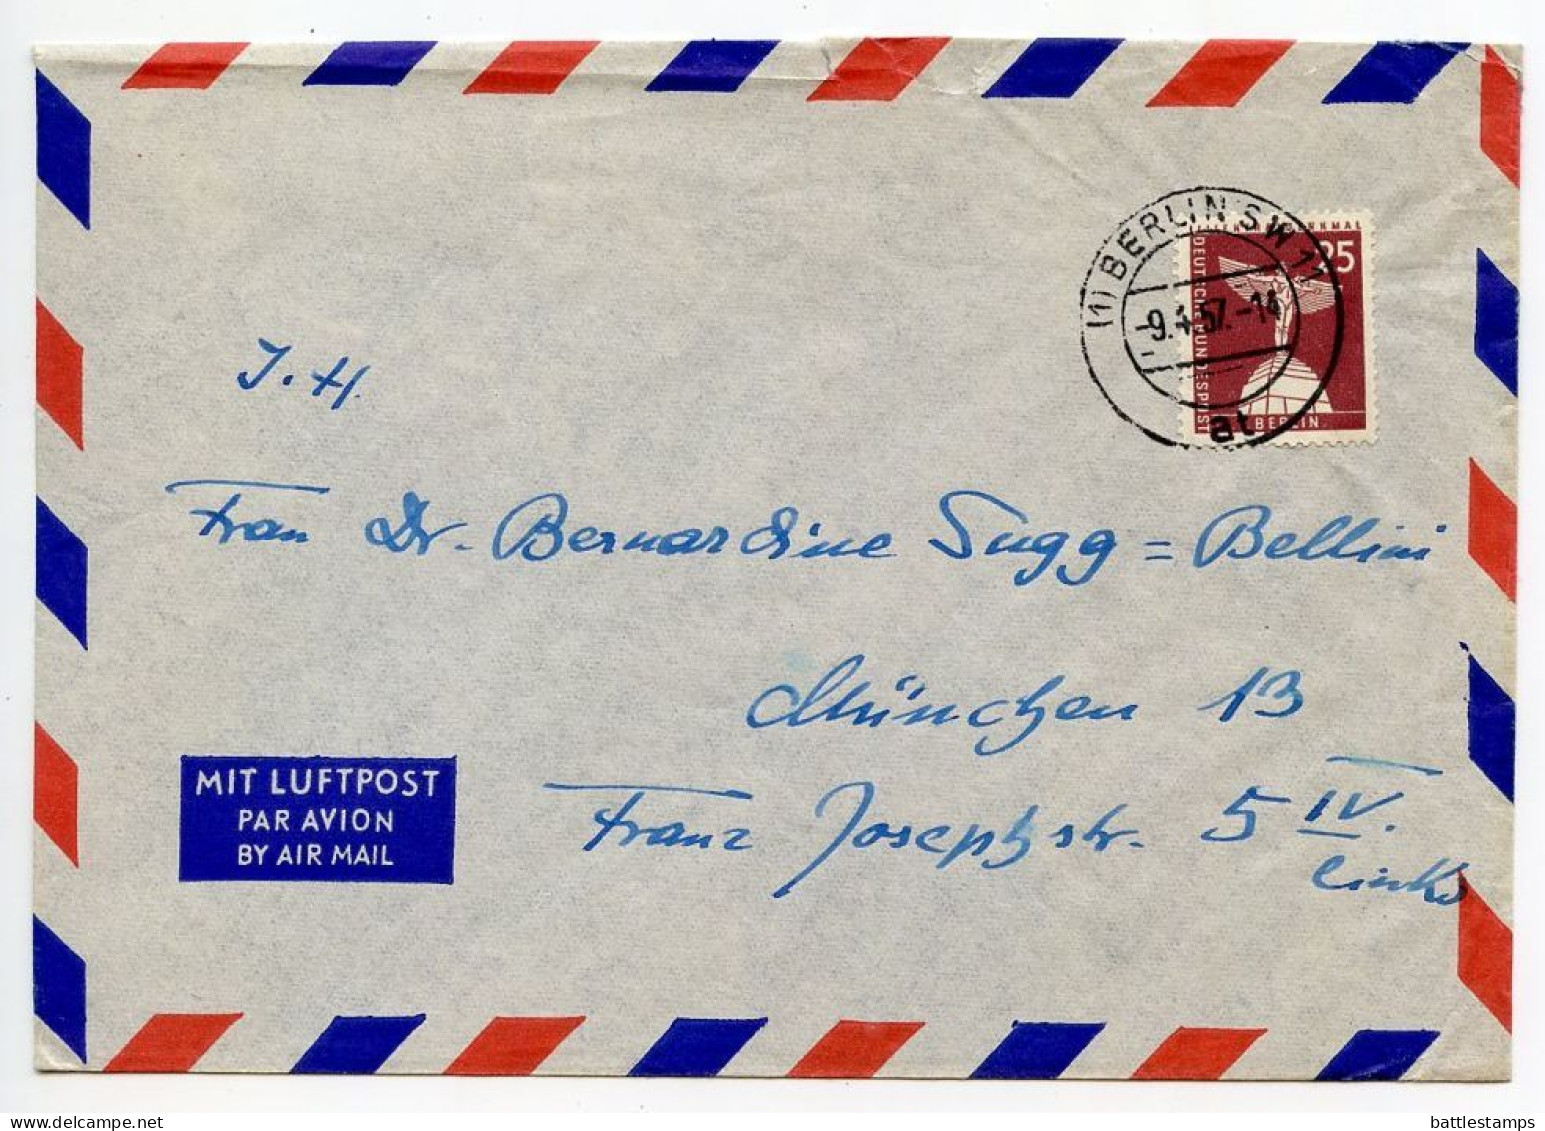 (1) BERLIN SW 11
-9.4.57.-14
at
25
DEUTSCHE BUNDESPOST
BERLIN
J. H.
Frau Dr. Bernardine Sugg = Bellini
München 13
Franz Josephstr. 5 IV.
links
MIT LUFTPOST
PAR AVION
BY AIR MAIL
delcampe.net
battlestamps